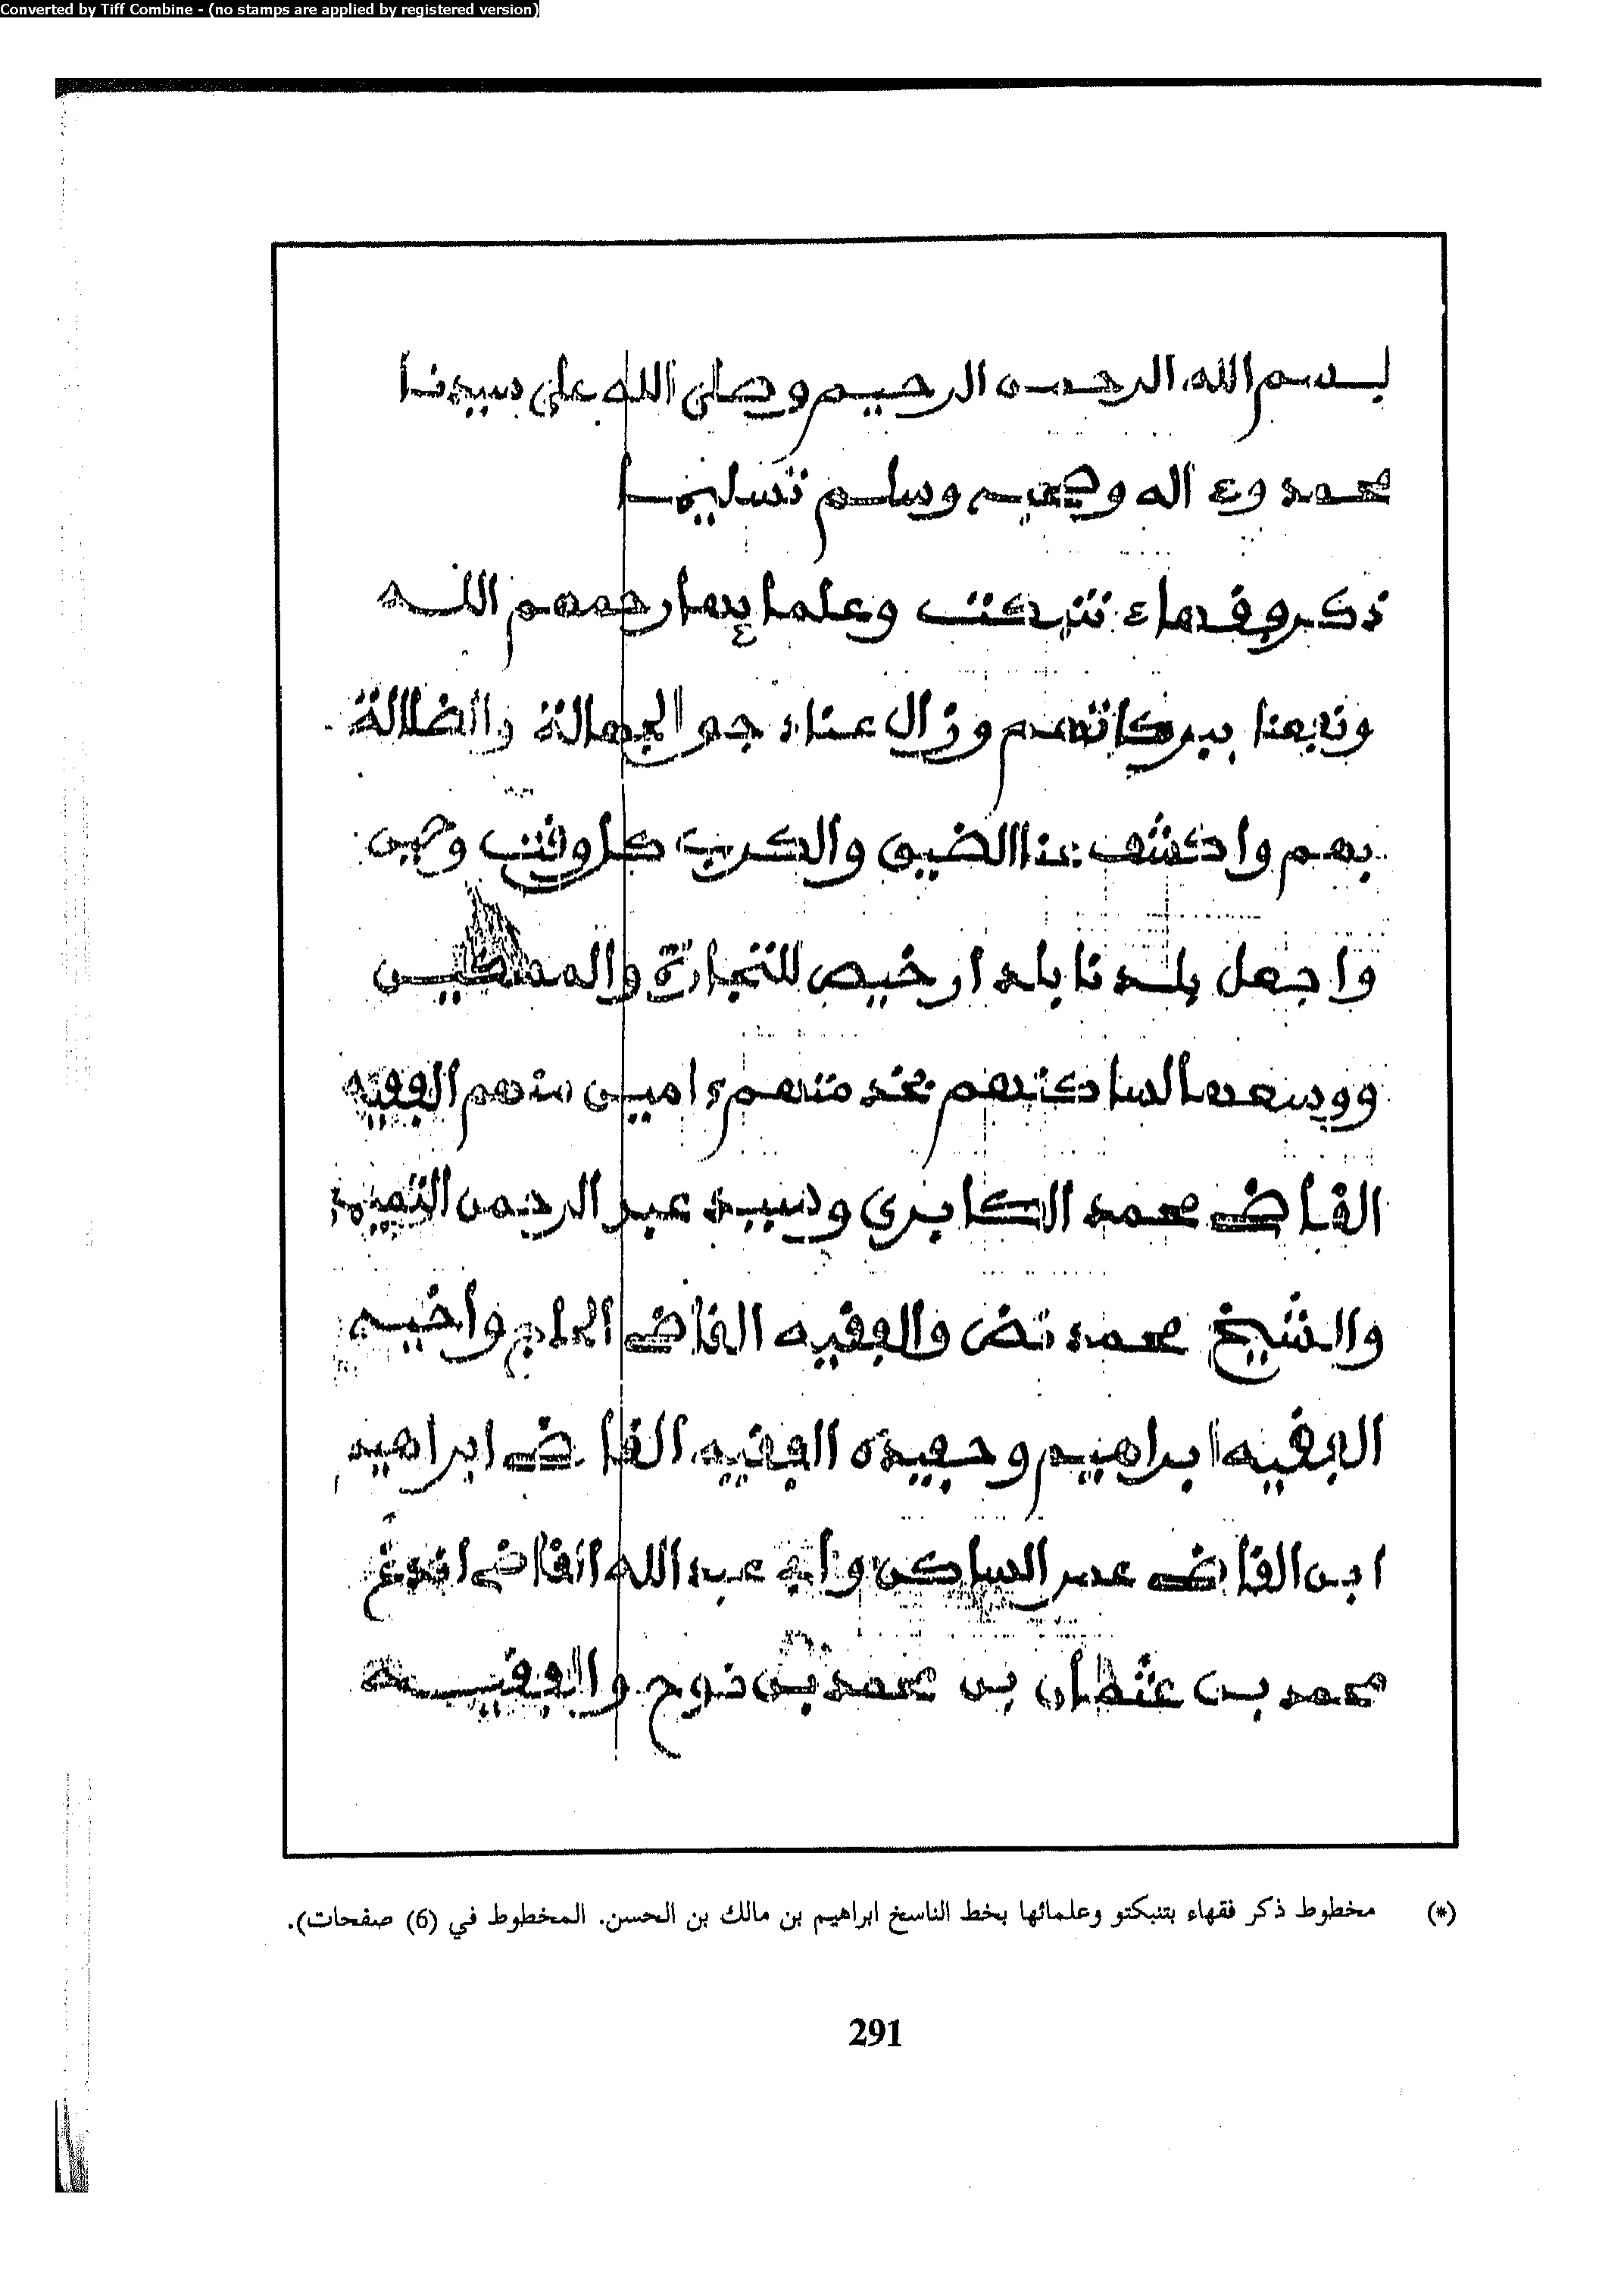 Converted by Tiff Combine - (no stamps are applied by registered version)
بسم الله الرحمن الرحيم وصلى الله على سيدنا
محمد وع اله وصحبه وسلم تسليما
ذكر فقهاء تنبكت وعلمايها رحمهم الله
ونفعنا ببركاتهم وزال عناء جو الجهالة والضلالة
بهم واكشف عنا الضيق والكرب كل وقت وحين
واجعل بلدنا بلد ارخيص للتجارة والمساكين
ووسعها لساكنهم بخدمتهم ءامين منهم الفقيه
القاضى محمد الكابرى وسيد عبد الرحمن التميمي
والشيخ محمد نض والفقيه القاضى الحاج واخيه
الفقيه ابراهيم وحفيده الفقيه القاضى ابراهيم
ابن القاضى عمر الساكن وابى عبد الله القاضى اندغ
محمد بن عثمان بن محمد بن نوح والفقيه
(*) مخطوط ذكر فقهاء بتنبكتو وعلمائها بخط الناسخ ابراهيم بن مالك بن الحسن. المخطوط في (6) صفحات).
291